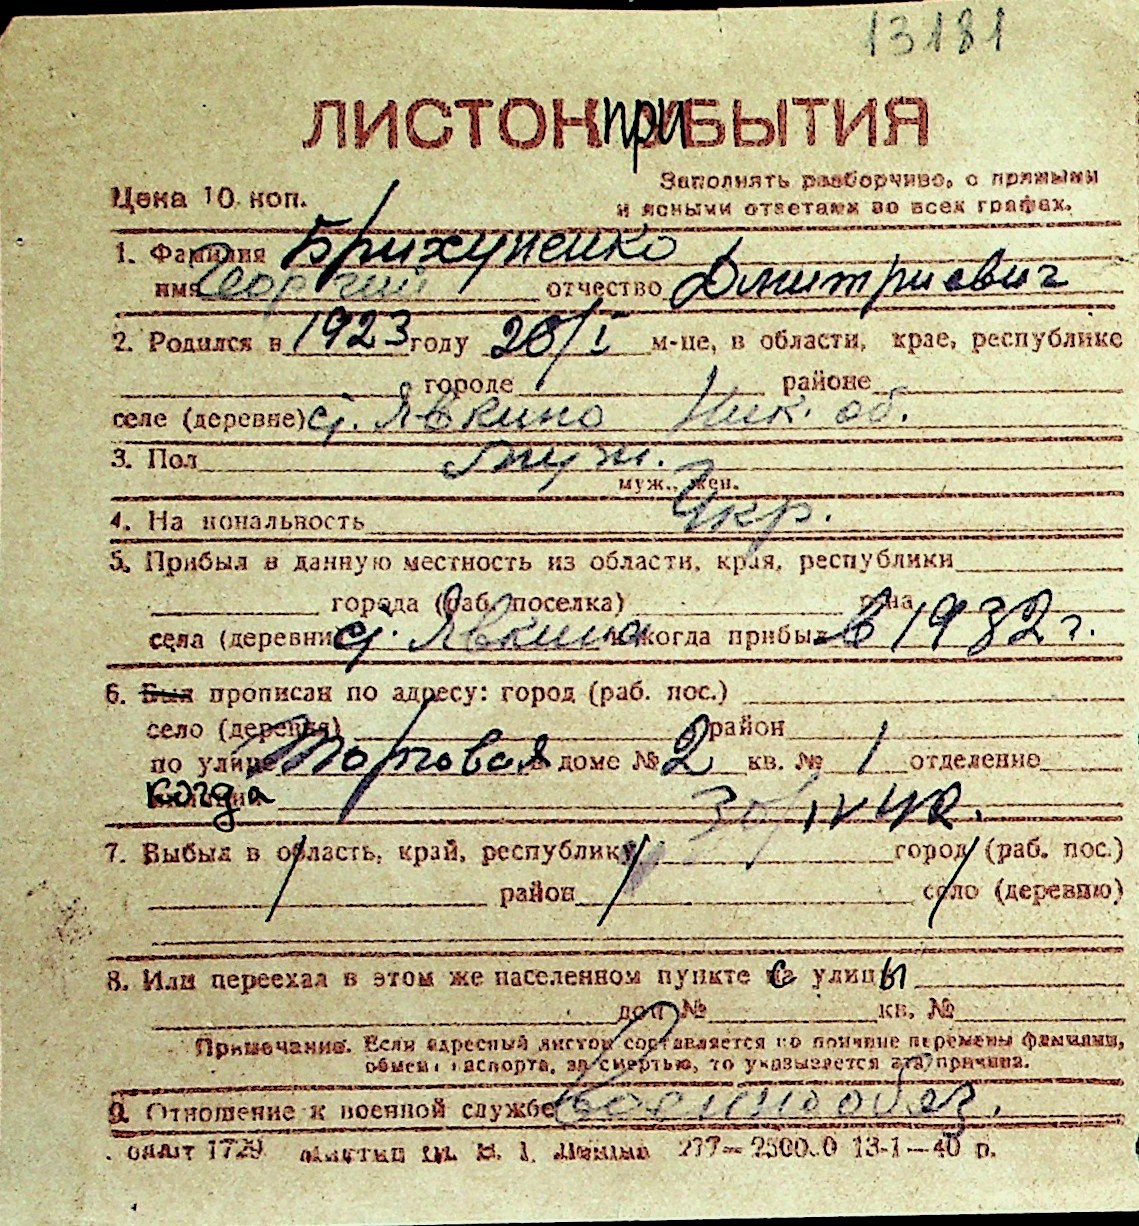 13181
ЛИСТОК при БЫТИЯ
Цена 10 коп.
Заполнять разборчиво, с прямыми
и ясными ответами во всех графах.
1. Фамилия Брихуненко
имя Георгий отчество Дмитриевич
2. Родился в 1923 году 26/I м-це, в области, крае, республике
городе районе
селе (деревне) с. Явкино Ник. об.
3. Пол муж.
муж., жен.
4. На иональность Укр.
5. Прибыл в данную местность из области, края, республики
города (раб. поселка) р-на
села (деревни с. Явкино и когда прибыл в 1932 г.
6. Был прописан по адресу: город (раб. пос.)
село (деревня) район
по улице Торговая в доме № 2 кв. № 1 отделение
когда 30/IV 42.
7. Выбыл в область, край, республику город (раб. пос.)
район село (деревню)
8. Или переехал в этом же населенном пункте с улицы
дом № кв. №
Примечание. Если адресный листок составляется по причине перемены фамилии,
обмена паспорта, за смертью, то указывается эта причина.
9. Отношение к военной службе Военнообяз.
1729 277—25000 13-1—40 р.